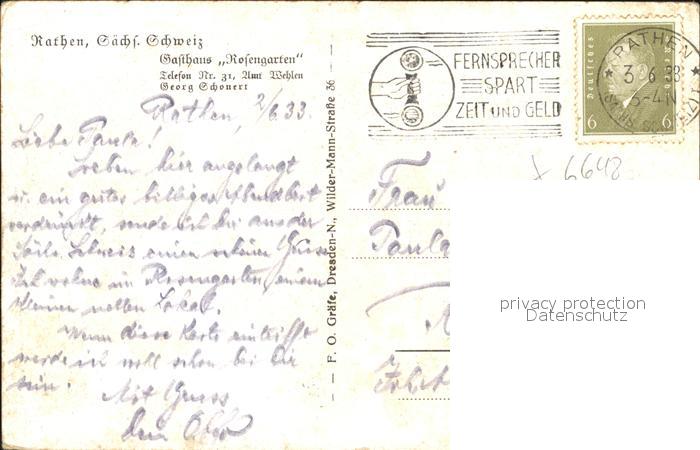 Rathen, Sächs. Schweiz
Gasthaus „Rosengarten"
Telefon Nr. 31, Amt Wehlen
Georg Schonert
Rathen, 2/6.33.
Liebe Paula!
Soeben hier angelangt
u. ein gutes billiges Abendbrot
sende ich Dir aus der
Sächs. Schweiz einen
Ich wohne im Rosengarten, einem
kleinen netten Lokal.
Wenn diese Karte eintrifft
werde ich wohl schon bei Dir
sein.
Mit Gruss
Dein
F. O. Gräfe, Dresden-N., Wilder-Mann-Straße 36
FERNSPRECHER
SPART
ZEIT UND GELD
Deutsches Reich
6 6
RATHEN
3.6.33
5-4N
x 6648
Frau
Paula
privacy protection
Datenschutz